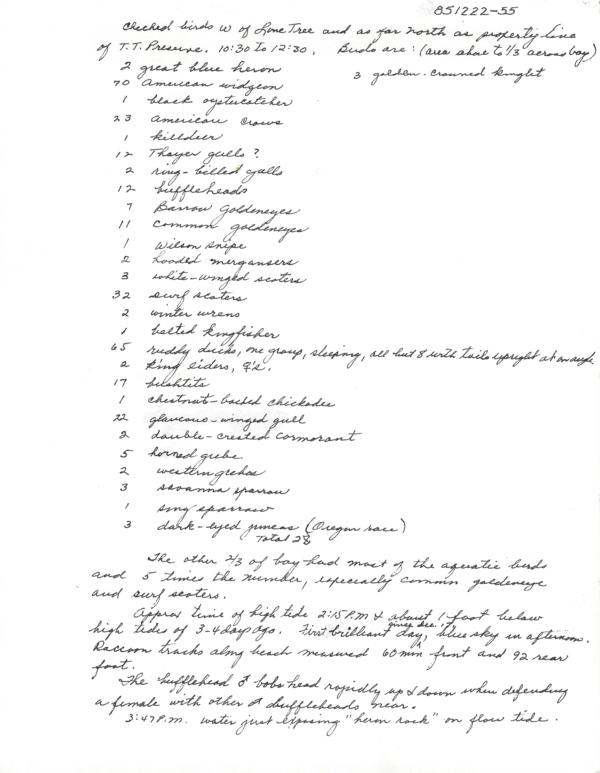 851222-55
Checked birds W of Lone Tree and as far north as property line
of T.T. Preserve. 10:30 to 12:30. Birds are: (area shore to 1/3 across bay)
2 great blue heron
3 golden-crowned kinglet
70 American widgeon
1 black oystercatcher
23 American crows
1 killdeer
12 Thayer gulls?
2 ring-billed gulls
12 buffleheads
7 Barrow goldeneyes
11 common goldeneyes
1 Wilson snipe
2 hooded mergansers
3 white-winged scoters
32 surf scoters
2 winter wrens
1 belted kingfisher
65 ruddy ducks, one group, sleeping, all but 8 with tails upright at an angle
2 king eiders, ♀'s.
17 bushtits
1 chestnut-backed chickadee
22 glaucous-winged gull
2 double-crested cormorant
5 horned grebe
2 western grebes
3 savanna sparrow
1 song sparrow
3 dark-eyed juncos (Oregon race)
Total 28
The other 2/3 of bay had most of the aquatic birds
and 5 times the number, especially common goldeneye
and surf scoters.
Approx time of high tide 2:15 P.M & about 1 foot below
high tides of 3-4 days ago. First brilliant day since Dec. 1, blue sky in afternoon.
Raccoon tracks along beach measured 60 mm front and 92 rear
foot.
The bufflehead ♂ bobs head rapidly up & down when defending
a female with other ♂ buffleheads near.
3:47 P.M. water just exposing "heron rock" on flow tide.